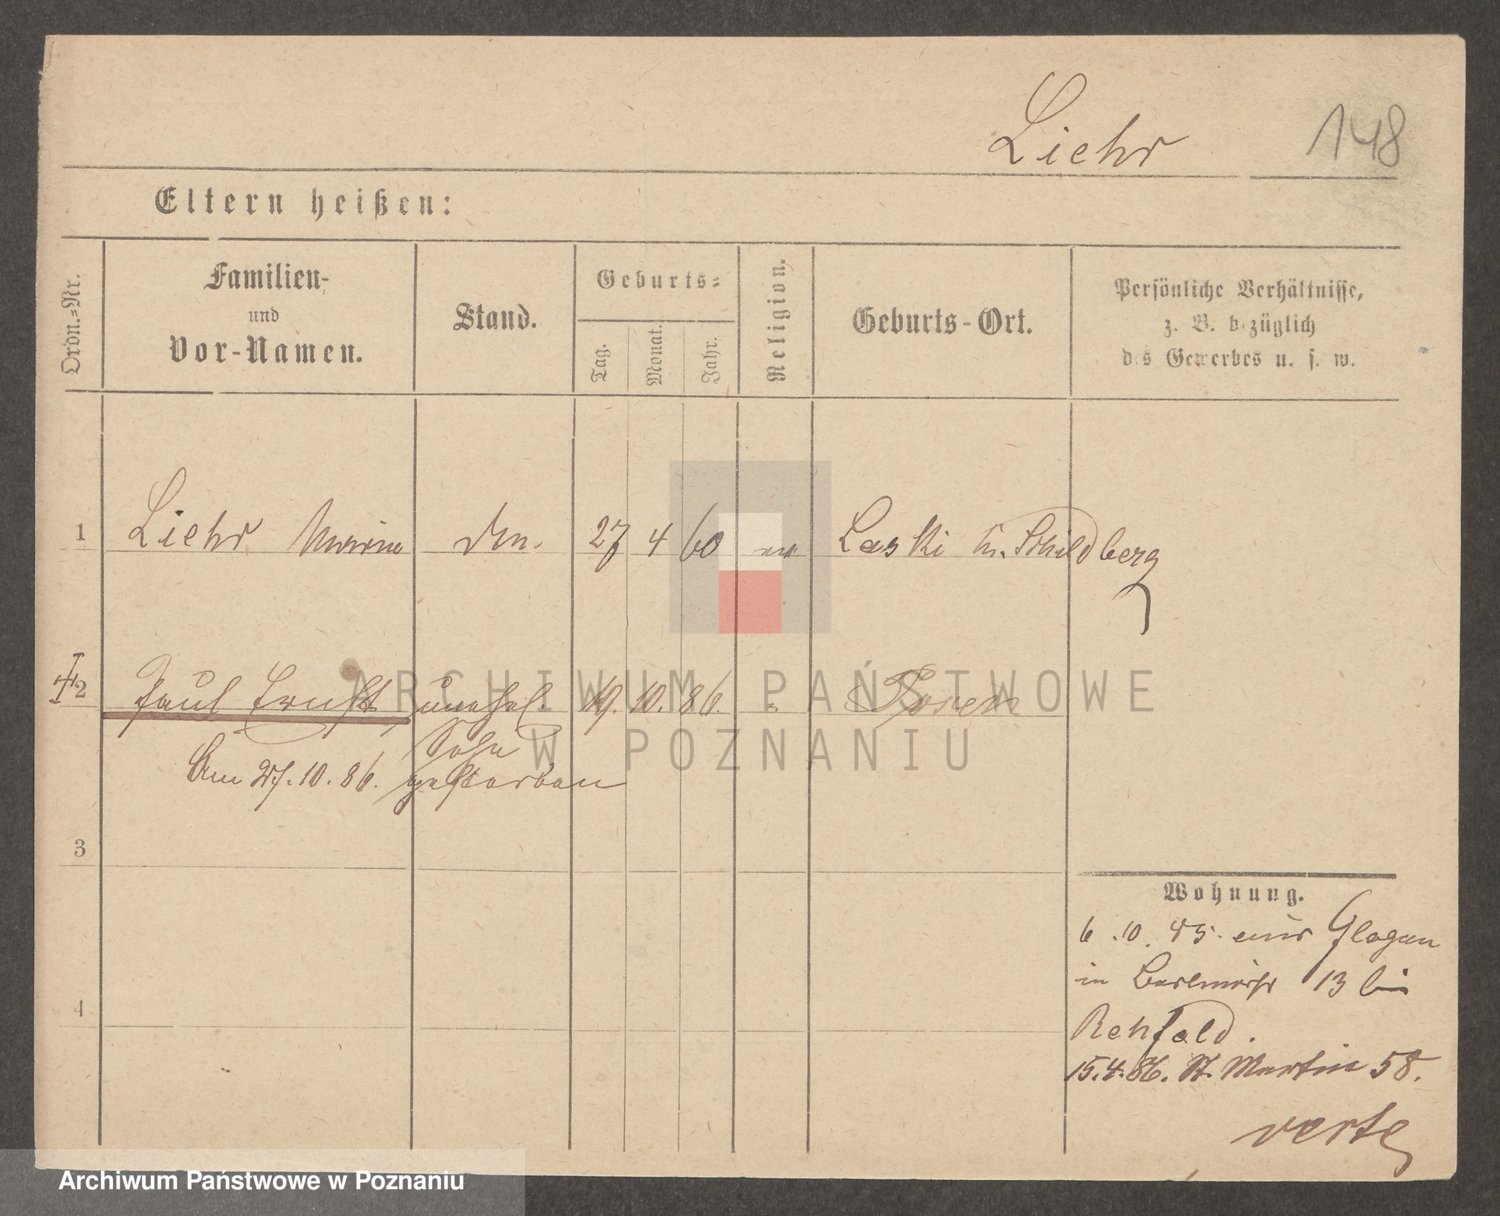 Liehr 148
Eltern heißen:
Ordn.-Nr.
Familien-
und
Vor-Namen.
Stand.
Geburts-
Tag.
Monat.
Jahr.
Religion.
Geburts-Ort.
Persönliche Verhältnisse,
z. B. bezüglich
des Gewerbes u. s. w.
1 Liehr 27 4 60 Laski Schildberg
2 Paul Ernst unehel. 19. 10. 86. Posen
Sohn
Am 27. 10. 86. gestorben
3
4
Wohnung.
6.10.85 aus Glogau
in 13 bei
Rehfeld.
15.4.86. St. Martin 58.
verte
ARCHIWUM PAŃSTWOWE
W POZNANIU
Archiwum Państwowe w Poznaniu